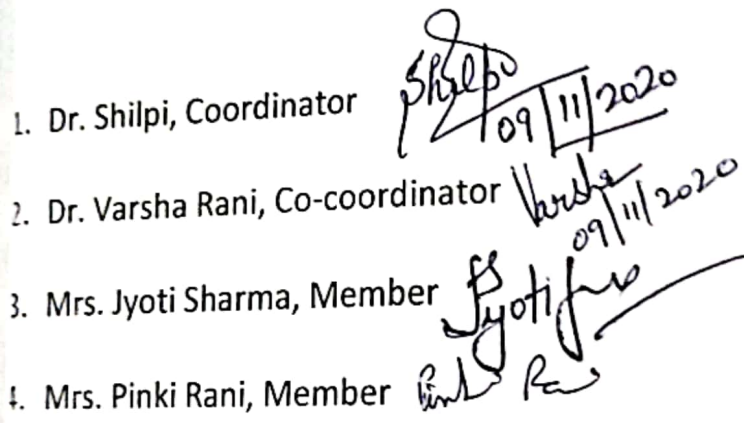 1. Dr. Shilpi, Coordinator Shilpi
09/11/2020
2. Dr. Varsha Rani, Co-coordinator Varsha
09/11/2020
3. Mrs. Jyoti Sharma, Member Jyoti
4. Mrs. Pinki Rani, Member Pinki Rani